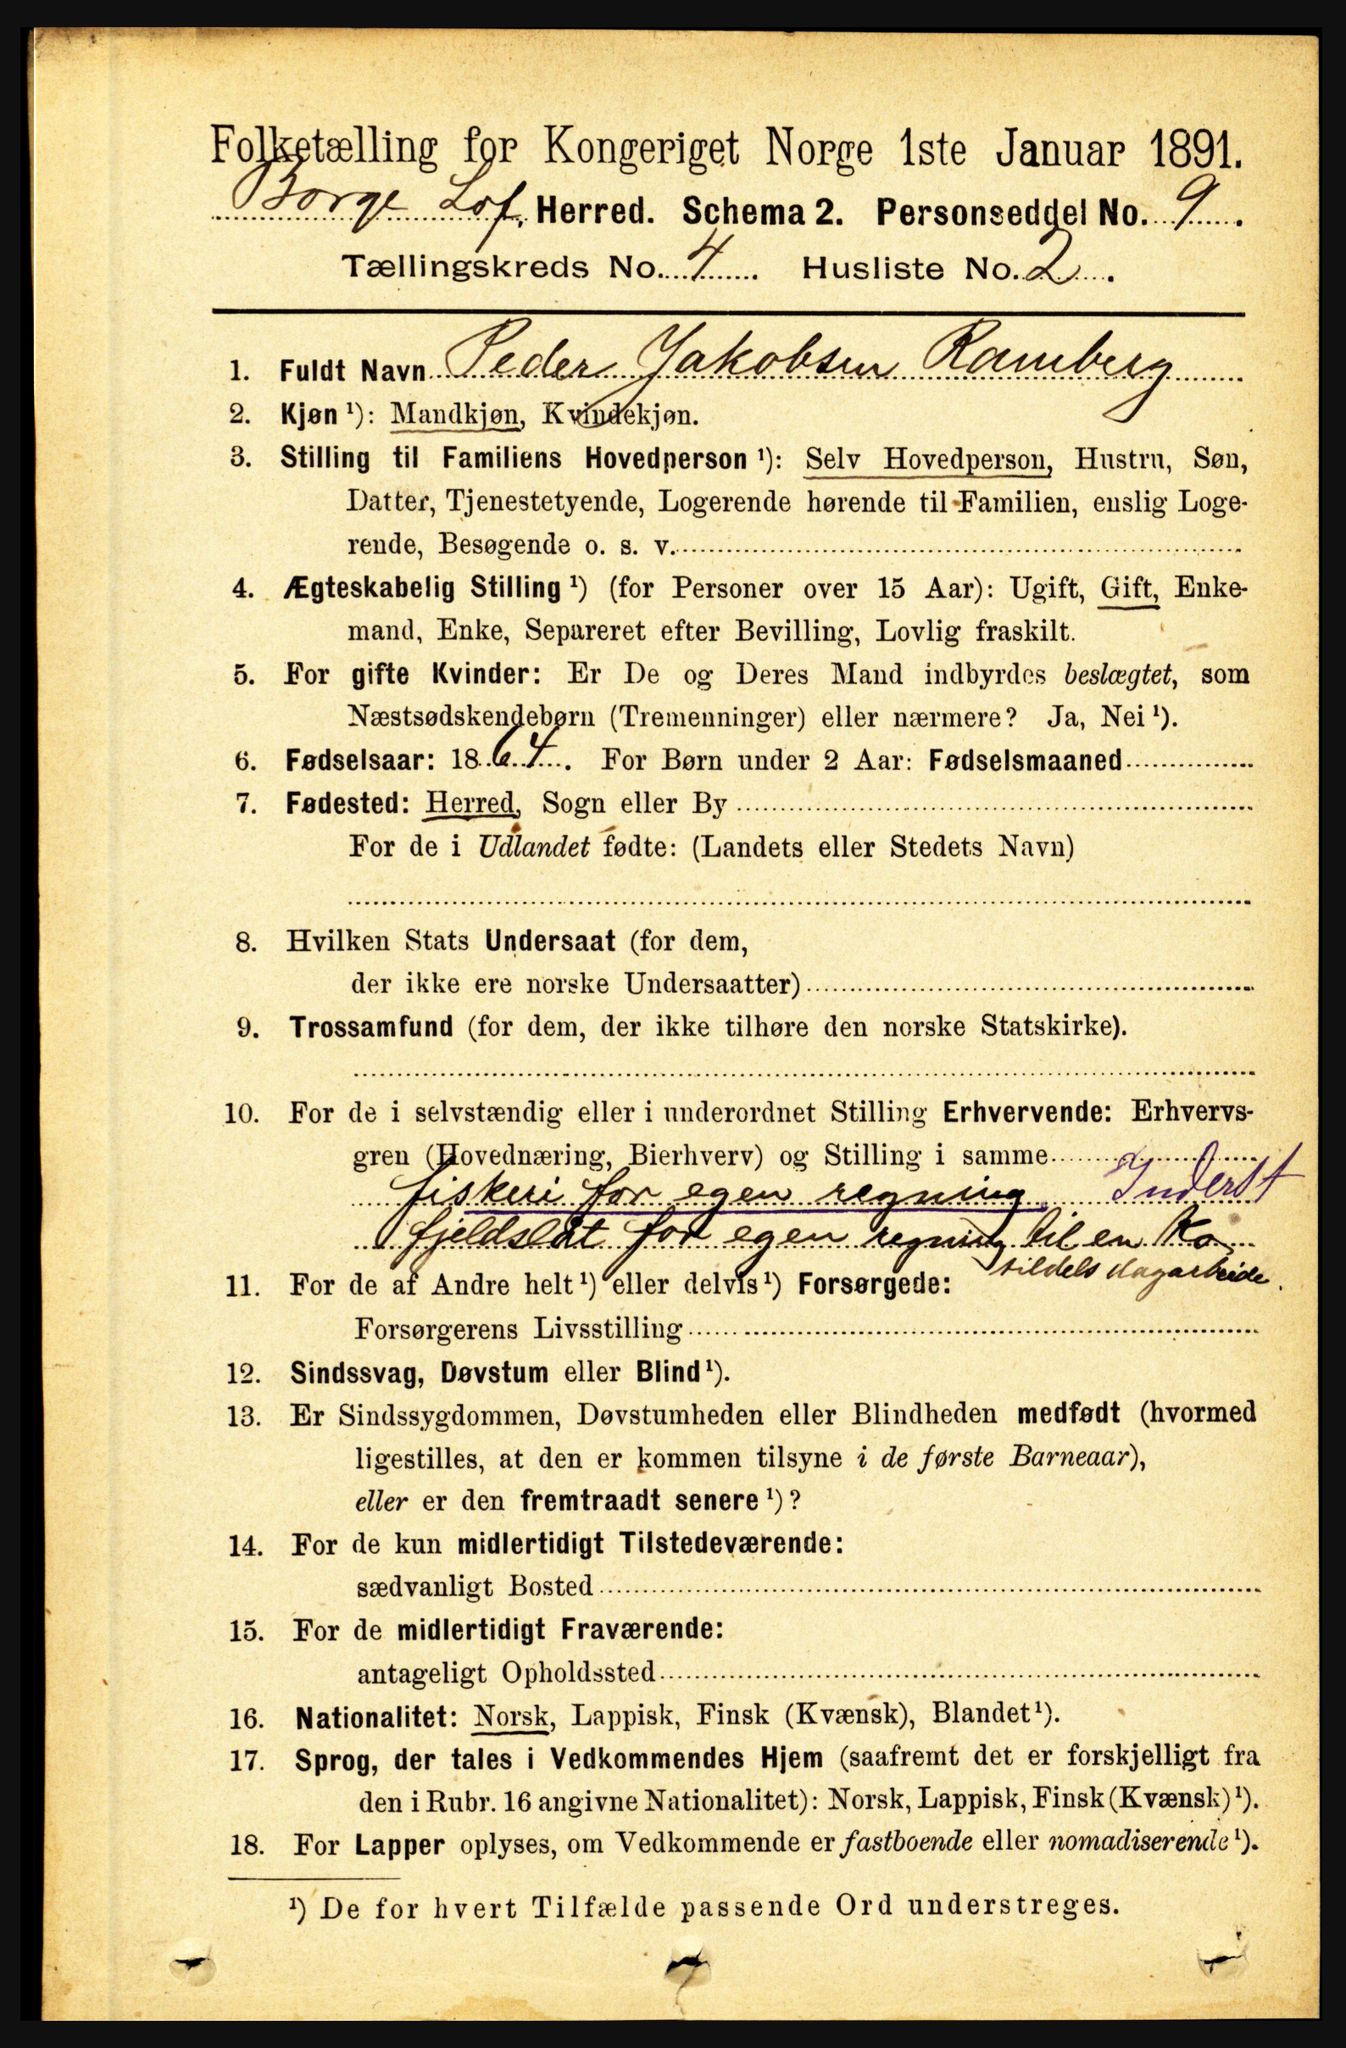 Folketælling for Kongeriget Norge 1ste Januar 1891.
Borge Lof. Herred. Schema 2. Personseddel No. 9.
Tællingskreds No. 4. Husliste No. 2.
1. Fuldt Navn Peder Jakobsen Ramberg
2. Kjøn ¹): Mandkjøn, Kvindekjøn.
3. Stilling til Familiens Hovedperson ¹): Selv Hovedperson, Hustru, Søn,
Datter, Tjenestetyende, Logerende hørende til Familien, enslig Loge-
rende, Besøgende o. s. v.
4. Ægteskabelig Stilling ¹) (for Personer over 15 Aar): Ugift, Gift, Enke-
mand, Enke, Separeret efter Bevilling, Lovlig fraskilt.
5. For gifte Kvinder: Er De og Deres Mand indbyrdes beslægtet, som
Næstsødskendebørn (Tremenninger) eller nærmere? Ja, Nei ¹).
6. Fødselsaar: 1864. For Børn under 2 Aar: Fødselsmaaned
7. Fødested: Herred, Sogn eller By
For de i Udlandet fødte: (Landets eller Stedets Navn)
8. Hvilken Stats Undersaat (for dem,
der ikke ere norske Undersaatter)
9. Trossamfund (for dem, der ikke tilhøre den norske Statskirke).
10. For de i selvstændig eller i underordnet Stilling Erhvervende: Erhvervs-
gren (Hovednæring, Bierhverv) og Stilling i samme
fiskeri for egen regning Inderst
fjeldslåt for egen regning til en Ko
tildels dagarbeide.
11. For de af Andre helt ¹) eller delvis ¹) Forsørgede:
Forsørgerens Livsstilling
12. Sindssvag, Døvstum eller Blind ¹).
13. Er Sindssygdommen, Døvstumheden eller Blindheden medfødt (hvormed
ligestilles, at den er kommen tilsyne i de første Barneaar),
eller er den fremtraadt senere ¹)?
14. For de kun midlertidigt Tilstedeværende:
sædvanligt Bosted
15. For de midlertidigt Fraværende:
antageligt Opholdssted
16. Nationalitet: Norsk, Lappisk, Finsk (Kvænsk), Blandet ¹).
17. Sprog, der tales i Vedkommendes Hjem (saafremt det er forskjelligt fra
den i Rubr. 16 angivne Nationalitet): Norsk, Lappisk, Finsk (Kvænsk) ¹).
18. For Lapper oplyses, om Vedkommende er fastboende eller nomadiserende ¹).
¹) De for hvert Tilfælde passende Ord understreges.